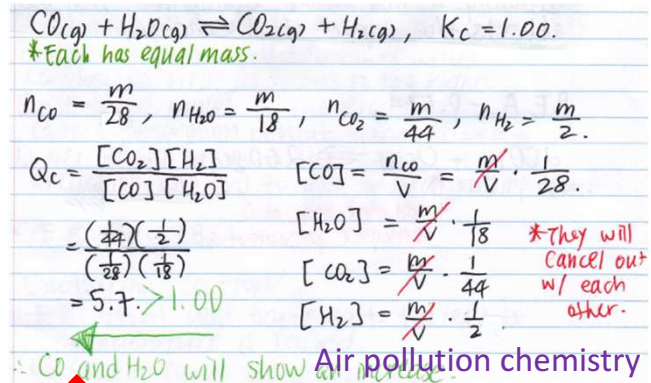 CO(g) + H2O(g) ⇌ CO2(g) + H2(g), Kc = 1.00.
*Each has equal mass.
nCO = m/28, nH2O = m/18, nCO2 = m/44, nH2 = m/2.
Qc = [CO2][H2] / [CO][H2O]
= (1/44)(1/2) / (1/28)(1/18)
= 5.7. > 1.00
[CO] = nco/V = m/V · 1/28.
[H2O] = m/V · 1/18
[CO2] = m/V · 1/44
[H2] = m/V · 1/2
*They will
cancel out
w/ each
other.
∴ CO and H2O will show an increase.
Air pollution chemistry